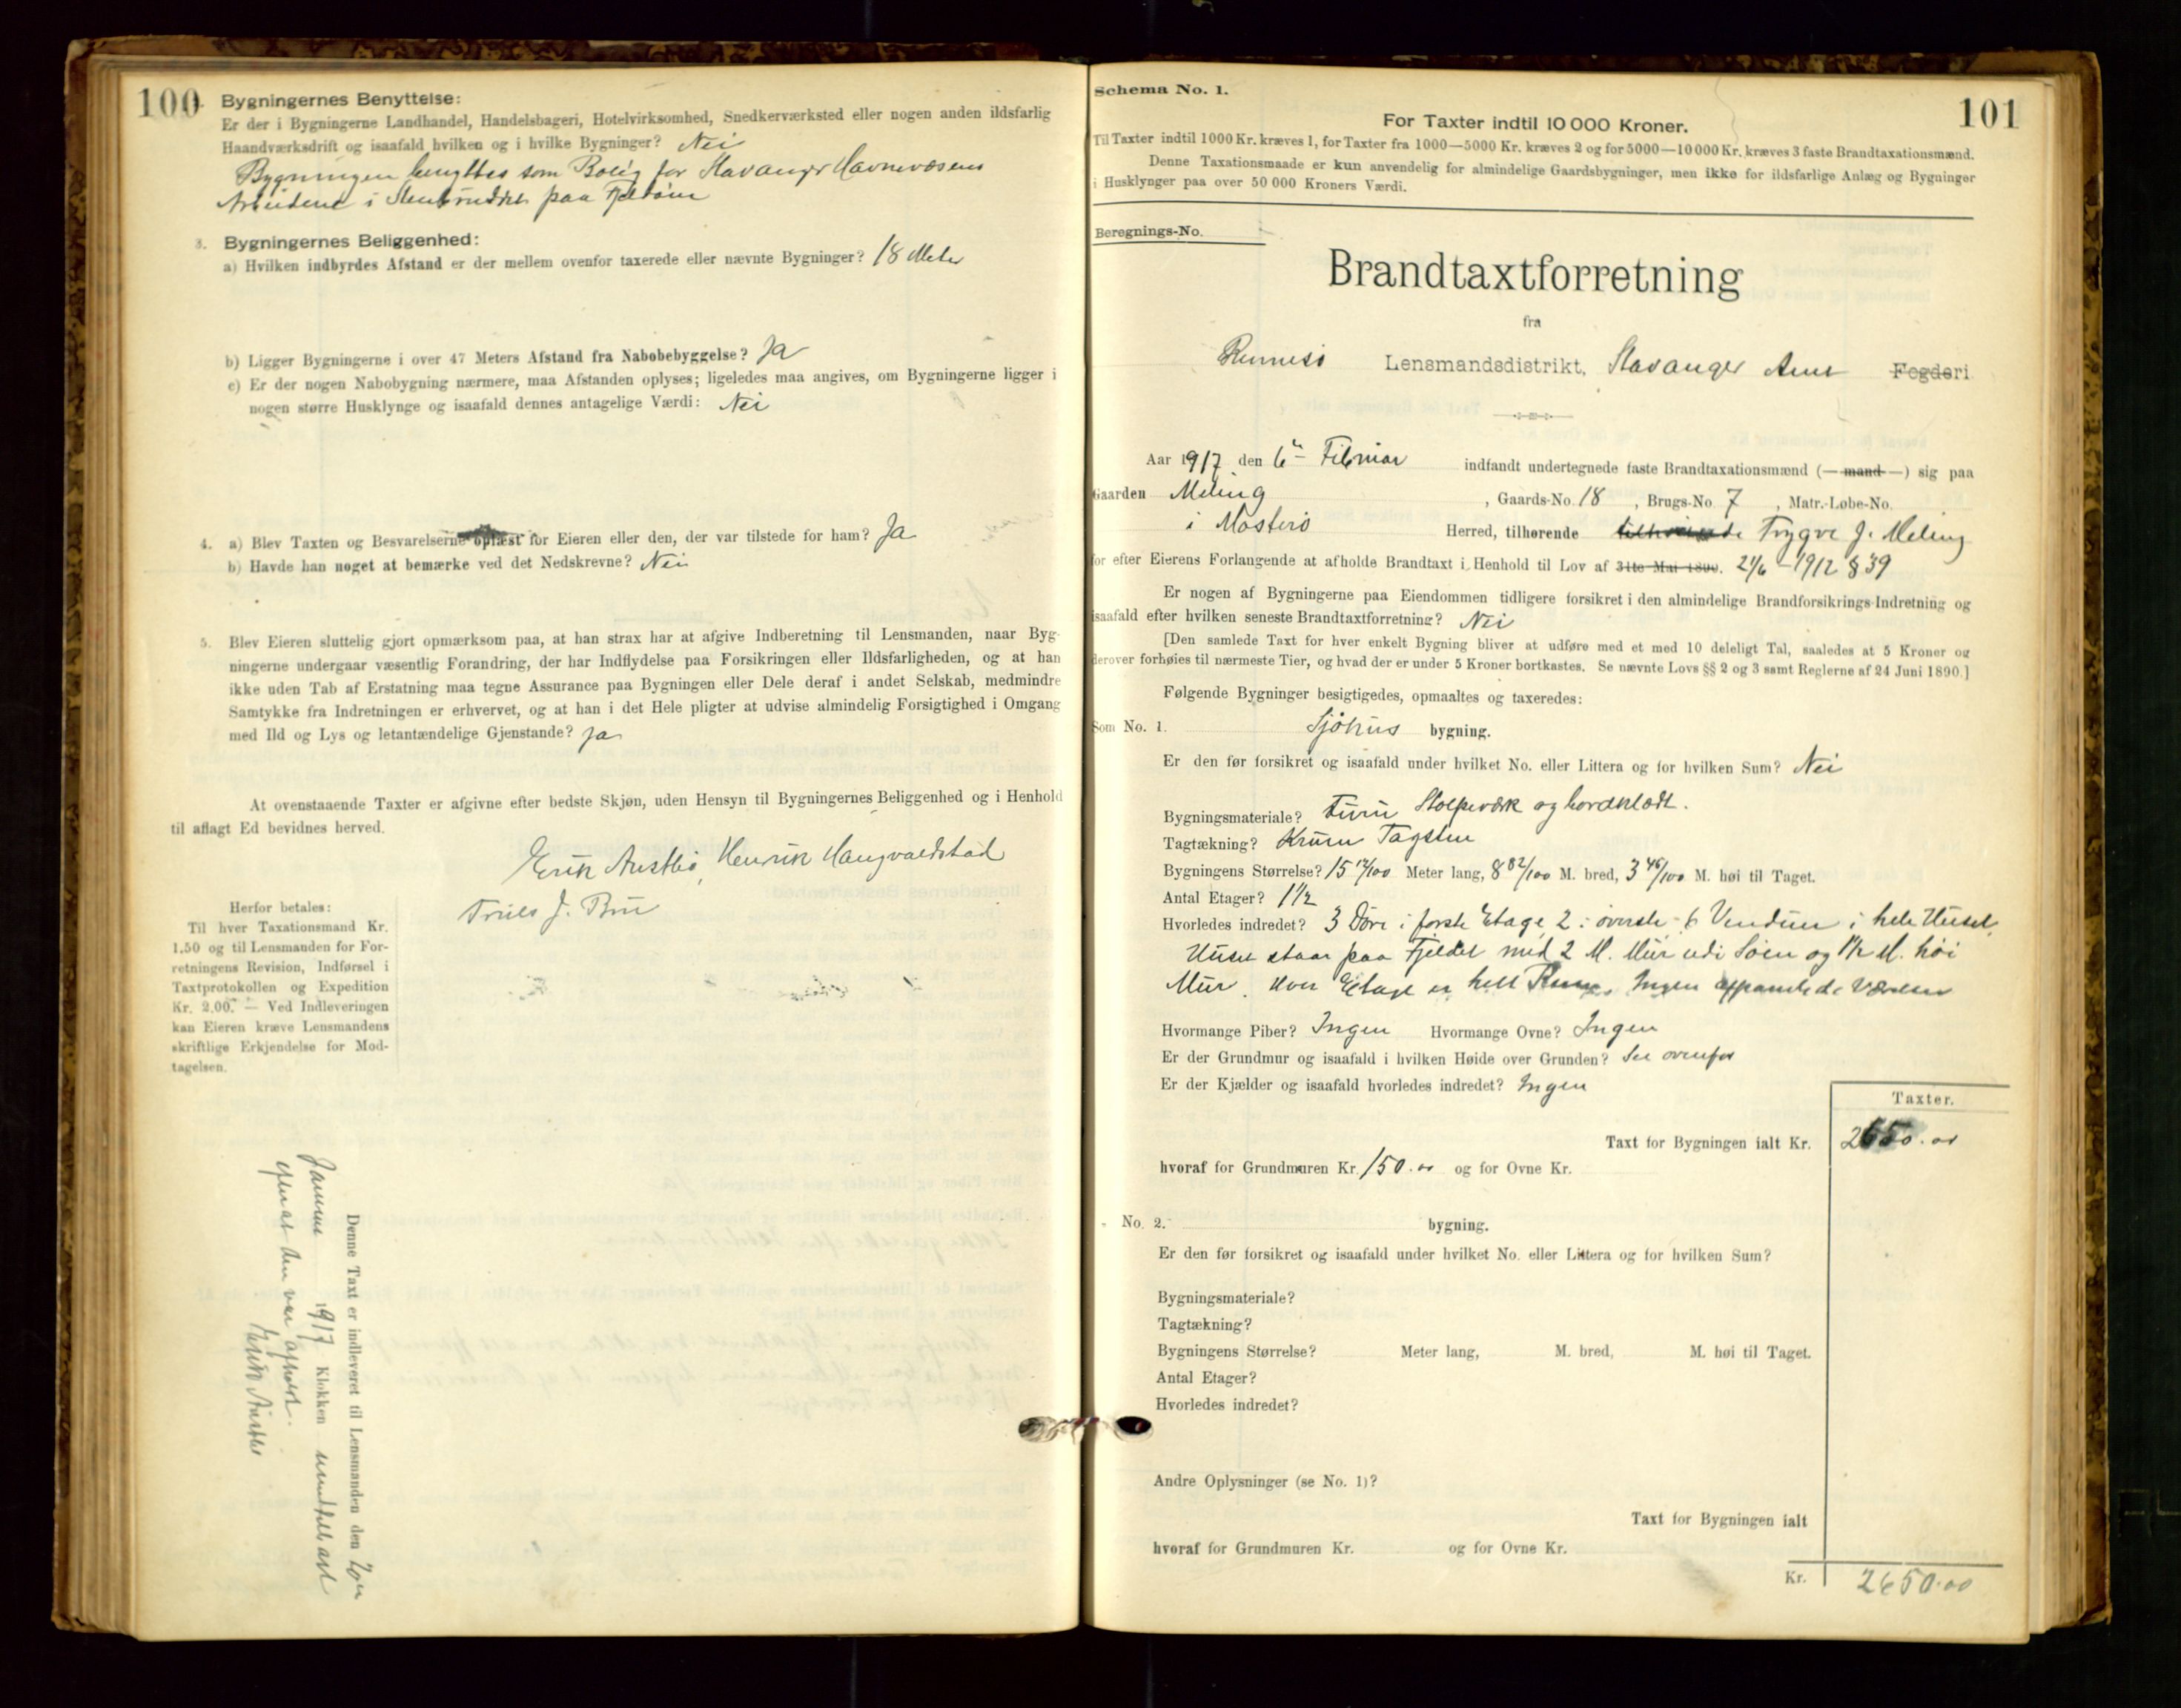 100
2. Bygningernes Benyttelse:
Er der i Bygningerne Landhandel, Handelsbageri, Hotelvirksomhed, Snedkerværksted eller nogen anden ildsfarlig
Haandværksdrift og isaafald hvilken og i hvilke Bygninger? Nei
Bygningen benyttes som Bolig for Stavanger Havnevæsens
Arbeidere i Stenbruddet paa Fjeldøien
3. Bygningernes Beliggenhed:
a) Hvilken indbyrdes Afstand er der mellem ovenfor taxerede eller nævnte Bygninger? 18 Meter
b) Ligger Bygningerne i over 47 Meters Afstand fra Nabobebyggelse? Ja
c) Er der nogen Nabobygning nærmere, maa Afstanden oplyses; ligeledes maa angives, om Bygningerne ligger i
nogen større Husklynge og isaafald dennes antagelige Værdi: Nei
4. a) Blev Taxten og Besvarelserne oplæst for Eieren eller den, der var tilstede for ham? Ja
b) Havde han noget at bemærke ved det Nedskrevne? Nei
5. Blev Eieren sluttelig gjort opmærksom paa, at han strax har at afgive Indberetning til Lensmanden, naar Byg-
ningerne undergaar væsentlig Forandring, der har Indflydelse paa Forsikringen eller Ildsfarligheden, og at han
ikke uden Tab af Erstatning maa tegne Assurance paa Bygningen eller Dele deraf i andet Selskab, medmindre
Samtykke fra Indretningen er erhvervet, og at han i det Hele pligter at udvise almindelig Forsigtighed i Omgang
med Ild og Lys og letantændelige Gjenstande? Ja
At ovenstaaende Taxter er afgivne efter bedste Skjøn, uden Hensyn til Bygningernes Beliggenhed og i Henhold
til aflagt Ed bevidnes herved.
Erik Austbø, Henrik Haugvaldstad
Truls J. Bru
Herfor betales:
Til hver Taxationsmand Kr.
1.50 og til Lensmanden for For-
retningens Revision, Indførsel i
Taxtprotokollen og Expedition
Kr. 2.00. — Ved Indleveringen
kan Eieren kræve Lensmandens
skriftlige Erkjendelse for Mod-
tagelsen.
Denne Taxt er indleveret til Lensmanden den
Januar 1917 Klokken umiddelbart
efterat den var afholdt.
Erik Austbø
101
Schema No. 1.
For Taxter indtil 10 000 Kroner.
Til Taxter indtil 1000 Kr. kræves 1, for Taxter fra 1000—5000 Kr. kræves 2 og for 5000—10 000 Kr. kræves 3 faste Brandtaxationsmænd.
Denne Taxationsmaade er kun anvendelig for almindelige Gaardsbygninger, men ikke for ildsfarlige Anlæg og Bygninger
i Husklynger paa over 50 000 Kroners Værdi.
Beregnings-No.
Brandtaxtforretning
fra
Rennesø Lensmandsdistrikt, Stavanger Amt Fogderi
Aar 1917 den 6te Februar indfandt undertegnede faste Brandtaxationsmænd (— mand —) sig paa
Gaarden Meling, Gaards-No. 18, Brugs-No. 7, Matr.-Løbe-No.
i Mosterø Herred, tilhørende Trygve J. Meling
for efter Eierens Forlangende at afholde Brandtaxt i Henhold til Lov af 31te Mai 1890. 21/6 - 1912 § 39
Er nogen af Bygningerne paa Eiendommen tidligere forsikret i den almindelige Brandforsikrings-Indretning og
isaafald efter hvilken seneste Brandtaxtforretning? Nei
[Den samlede Taxt for hver enkelt Bygning bliver at udføre med et med 10 deleligt Tal, saaledes at 5 Kroner og
derover forhøies til nærmeste Tier, og hvad der er under 5 Kroner bortkastes. Se nævnte Lovs §§ 2 og 3 samt Reglerne af 24 Juni 1890.]
Følgende Bygninger besigtigedes, opmaaltes og taxeredes:
Som No. 1. Sjøhus bygning.
Er den før forsikret og isaafald under hvilket No. eller Littera og for hvilken Sum? Nei
Bygningsmateriale? Furu Stolpeværk og bordklædt.
Tagtækning? Krum Tagsten
Bygningens Størrelse? 15 12/100 Meter lang, 8 82/100 M. bred, 3 46/100 M. høi til Taget.
Antal Etager? 1 1/2
Hvorledes indredet? 3 Døre i første Etage, 2 i øverste. 6 Vinduer i hele Huset.
Huset staar paa Fjeldet med 2 M. Mur udi Søen og 1 1/2 M. høi
Mur. Hver Etage er helt Rum. Ingen afpanelede Værelser
Hvormange Piber? Ingen Hvormange Ovne? Ingen
Er der Grundmur og isaafald i hvilken Høide over Grunden? Se ovenfor
Er der Kjælder og isaafald hvorledes indredet? Ingen
Taxter.
Taxt for Bygningen ialt Kr. 2650.00
hvoraf for Grundmuren Kr. 150.00 og for Ovne Kr.
No. 2. bygning.
Er den før forsikret og isaafald under hvilket No. eller Littera og for hvilken Sum?
Bygningsmateriale?
Tagtækning?
Bygningens Størrelse? Meter lang, M. bred, M. høi til Taget.
Antal Etager?
Hvorledes indredet?
Andre Oplysninger (se No. 1)?
Taxt for Bygningen ialt
hvoraf for Grundmuren Kr. og for Ovne Kr.
Kr. 2650.00